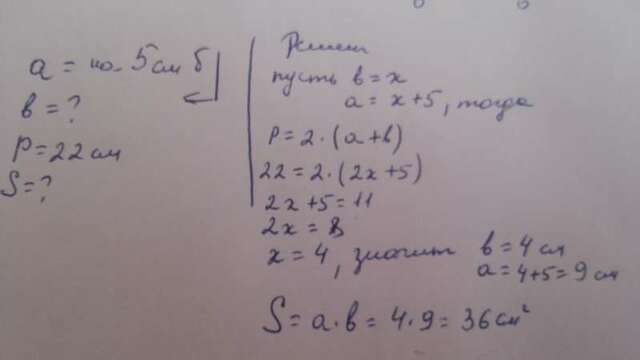 a = на 5 см б
в = ?
P = 22 см
S = ?
Решен
пусть в = x
a = x+5, тогда
P = 2 · (a+в)
22 = 2 · (2x+5)
2x+5 = 11
2x = 8
x = 4, значит в = 4 см
a = 4+5 = 9 см
S = a · в = 4 · 9 = 36 см²